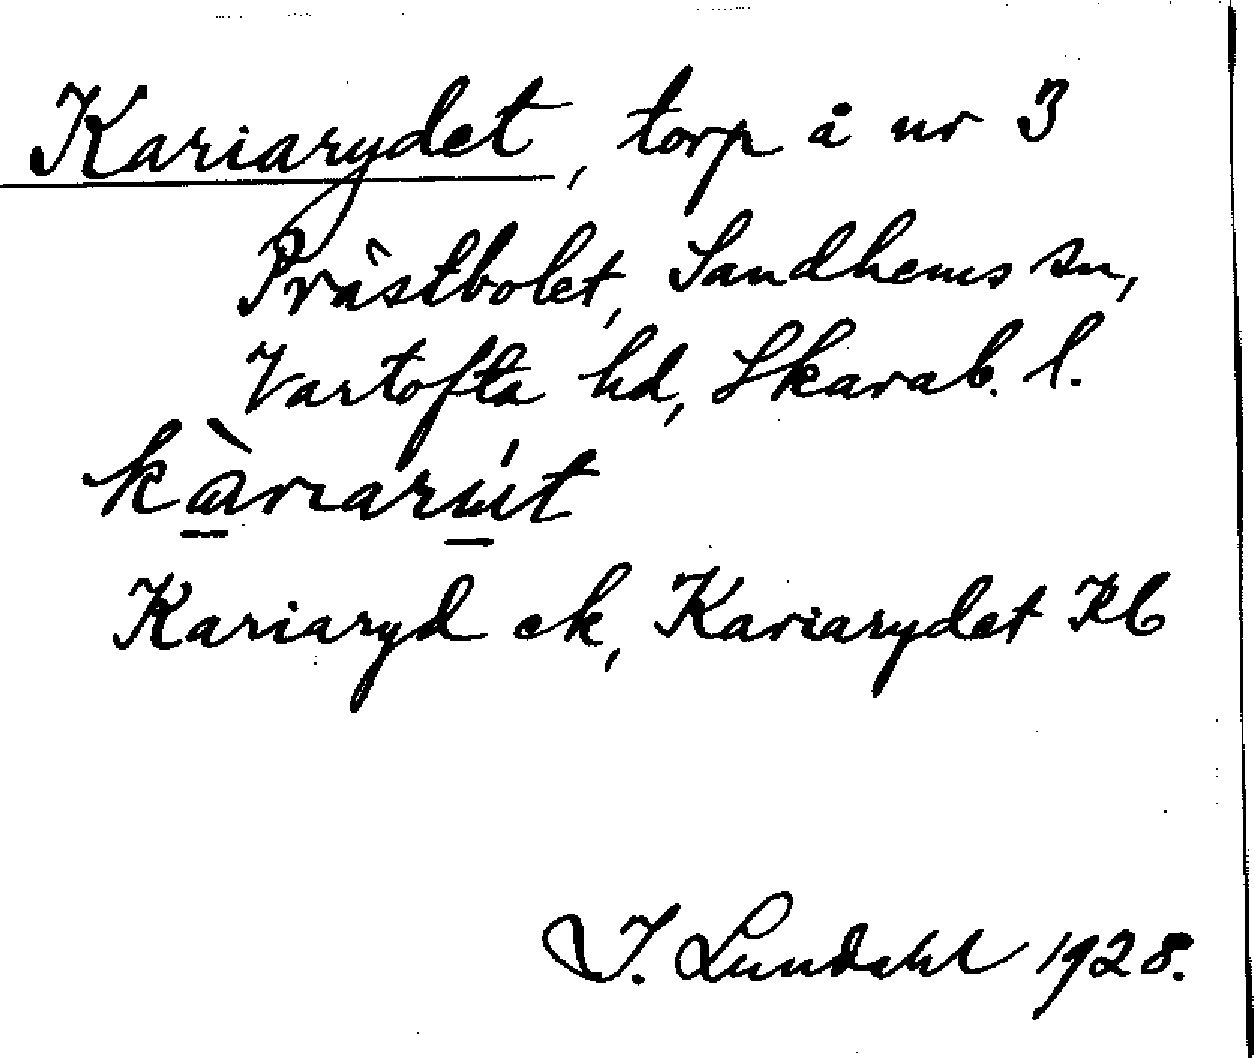 Kariarydet, torp å nr 3
Prästbolet, Sandhems sn,
Vartofta hd, Skarab. l.
Kariaryd ek, Kariarydet Kb
I. Lundahl 1928.